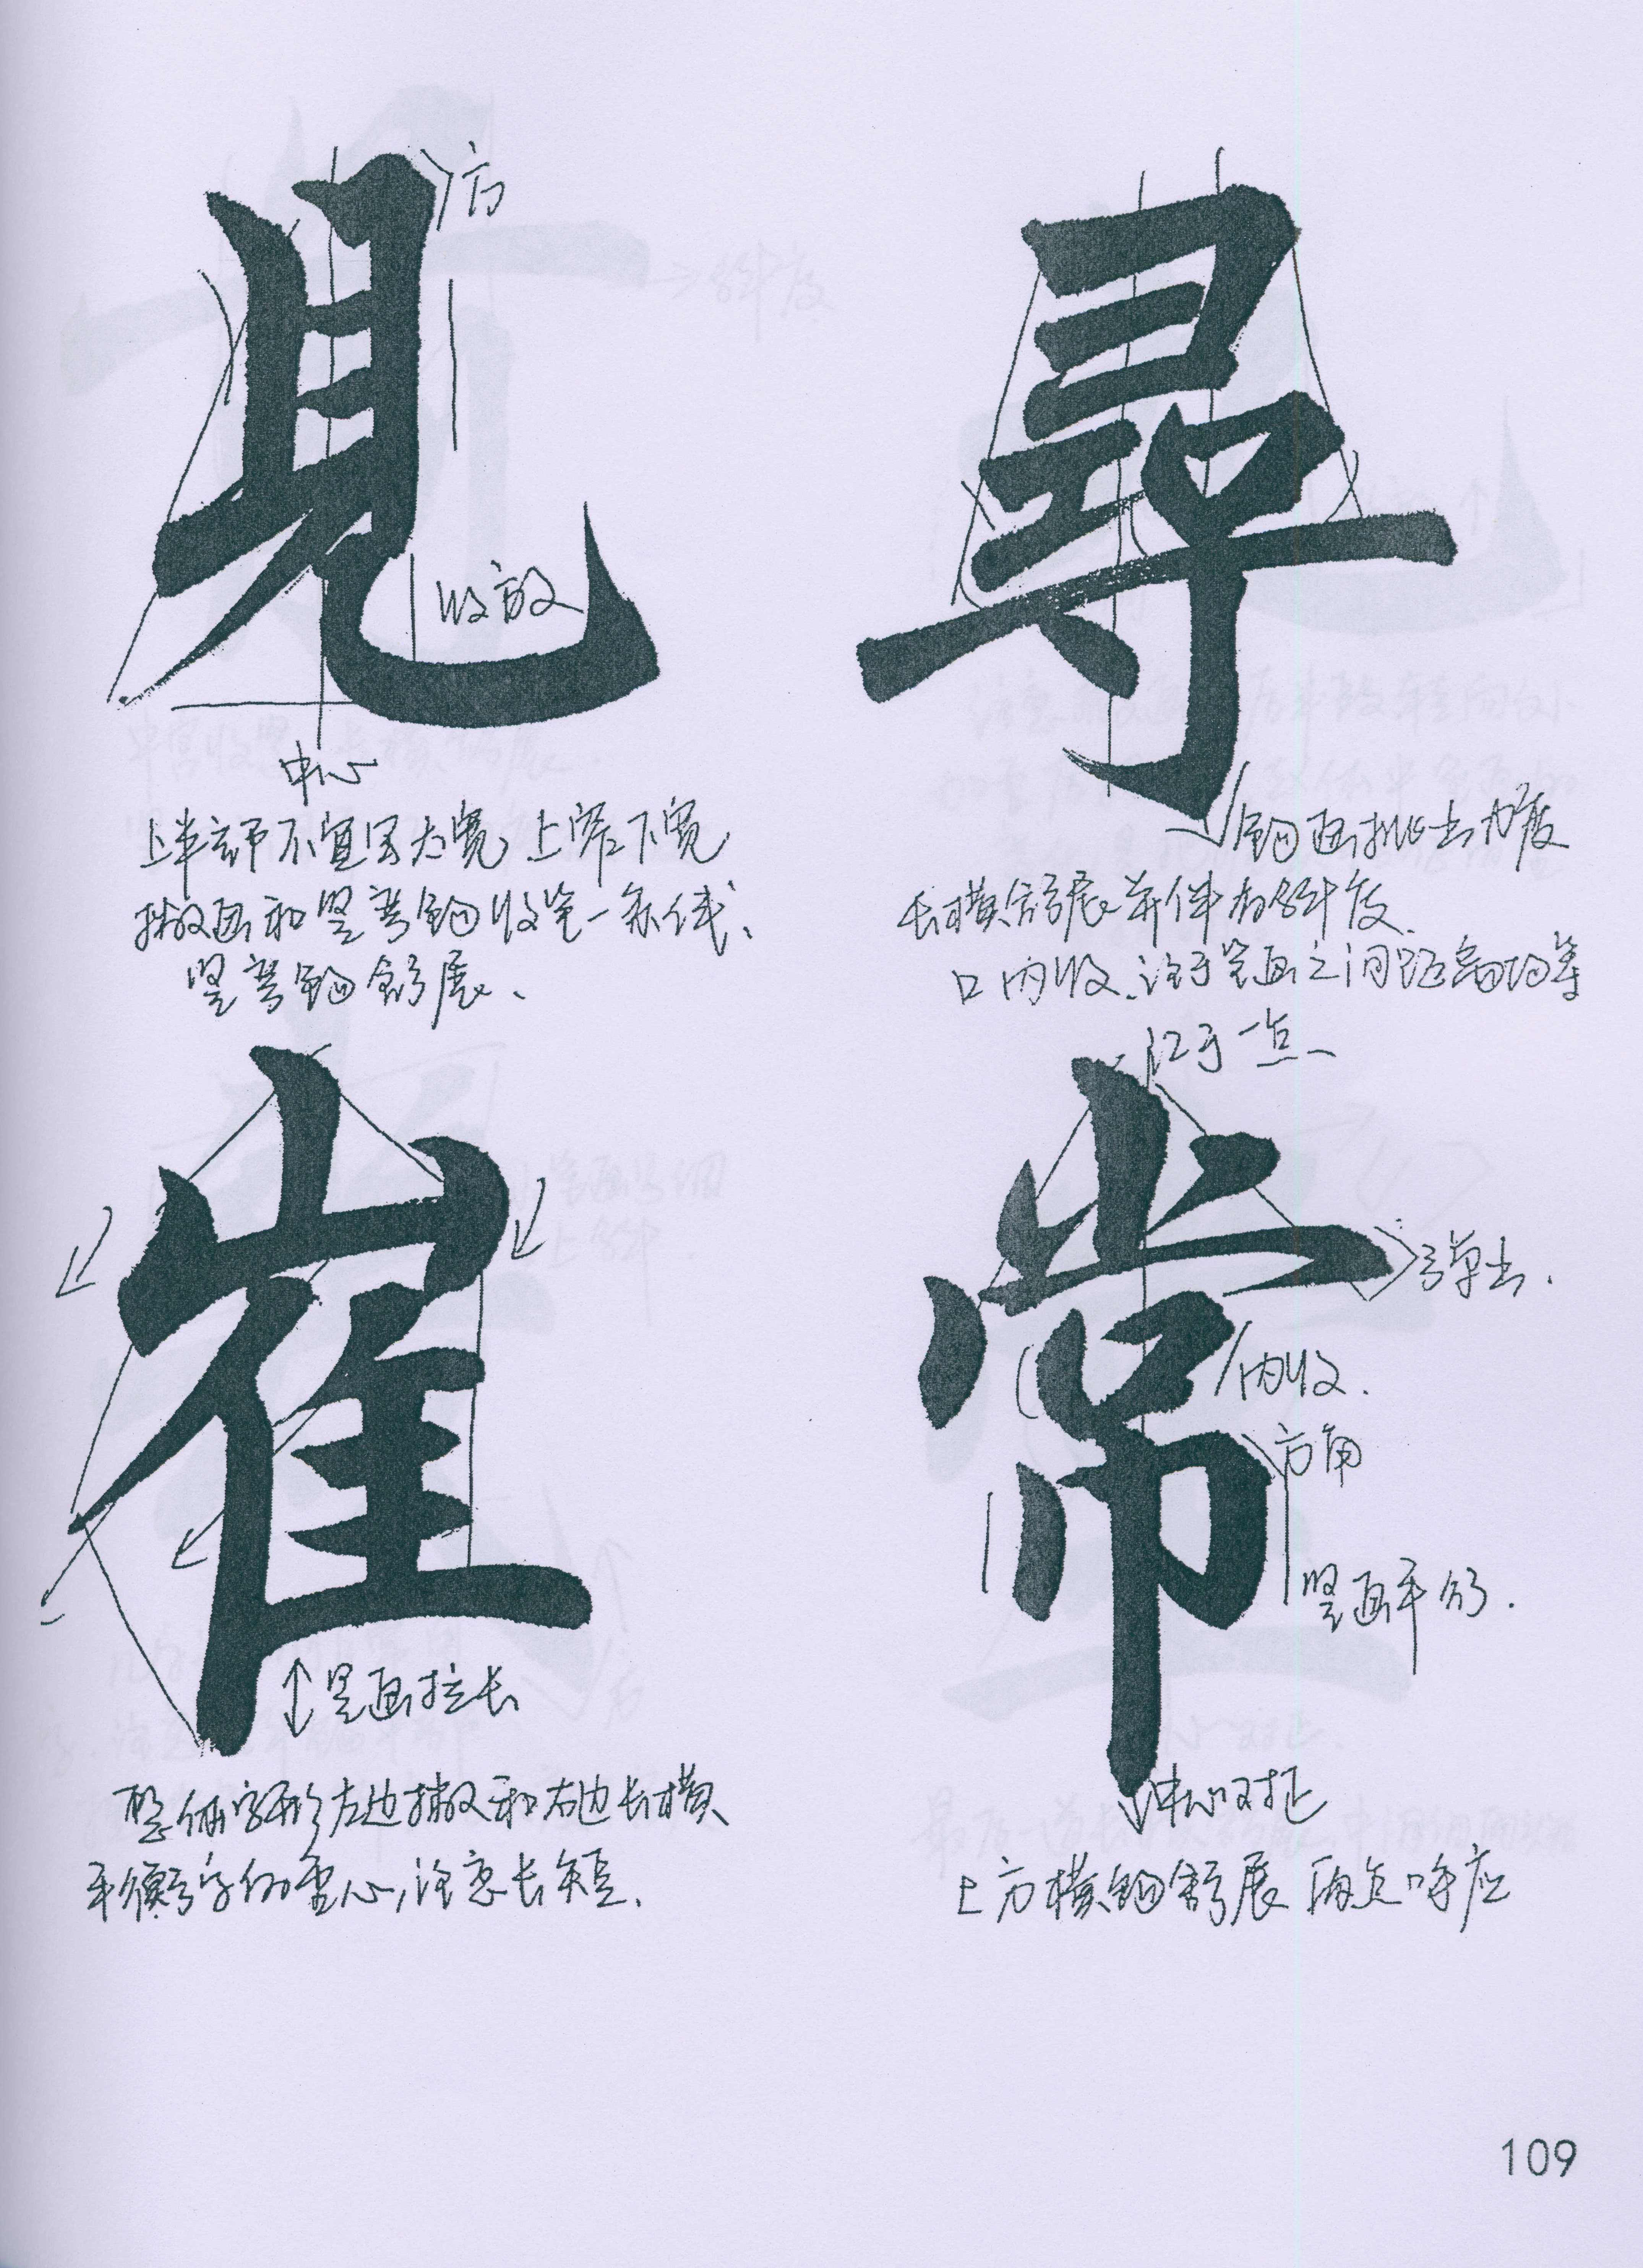 見
方
收放
中心
上半部不宜写太宽 上窄下宽
撇画和竖弯钩收笔一条线、
竖弯钩舒展、
尋
钩画挑出力度
长横舒展并伴有斜度
口内收、注于笔画之间距离均等
崔
竖画拉长
整个字形左边撇和右边长横
平衡字的重心,注意长短.
汇于一点
常
弹出.
内收.
方角
竖画平行.
中心对正
上方横钩舒展 两点呼应
109